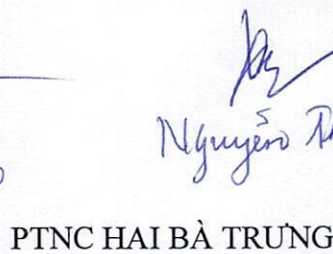 Nguyễn
PTNC HAI BÀ TRƯNG